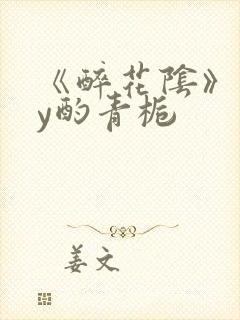 《醉花陰》
y酌青栀
姜文